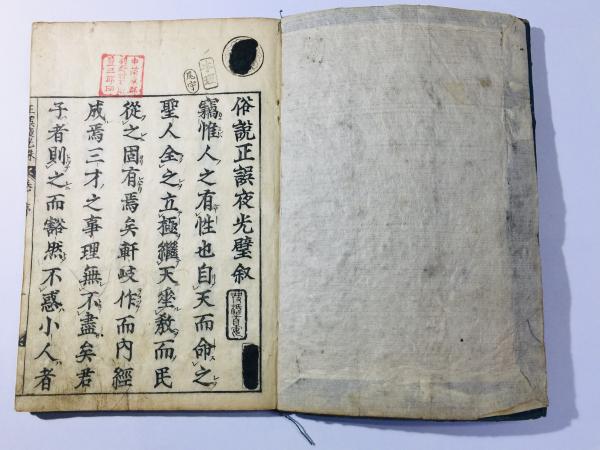 俗說正誤夜光璧叙
竊惟人之有性也自天而命之
聖人全之立極繼天垂教而民
從之固有焉矣軒岐作而內經
成焉三才之事理無不盡矣君
子者則之而豁然不惑小人者